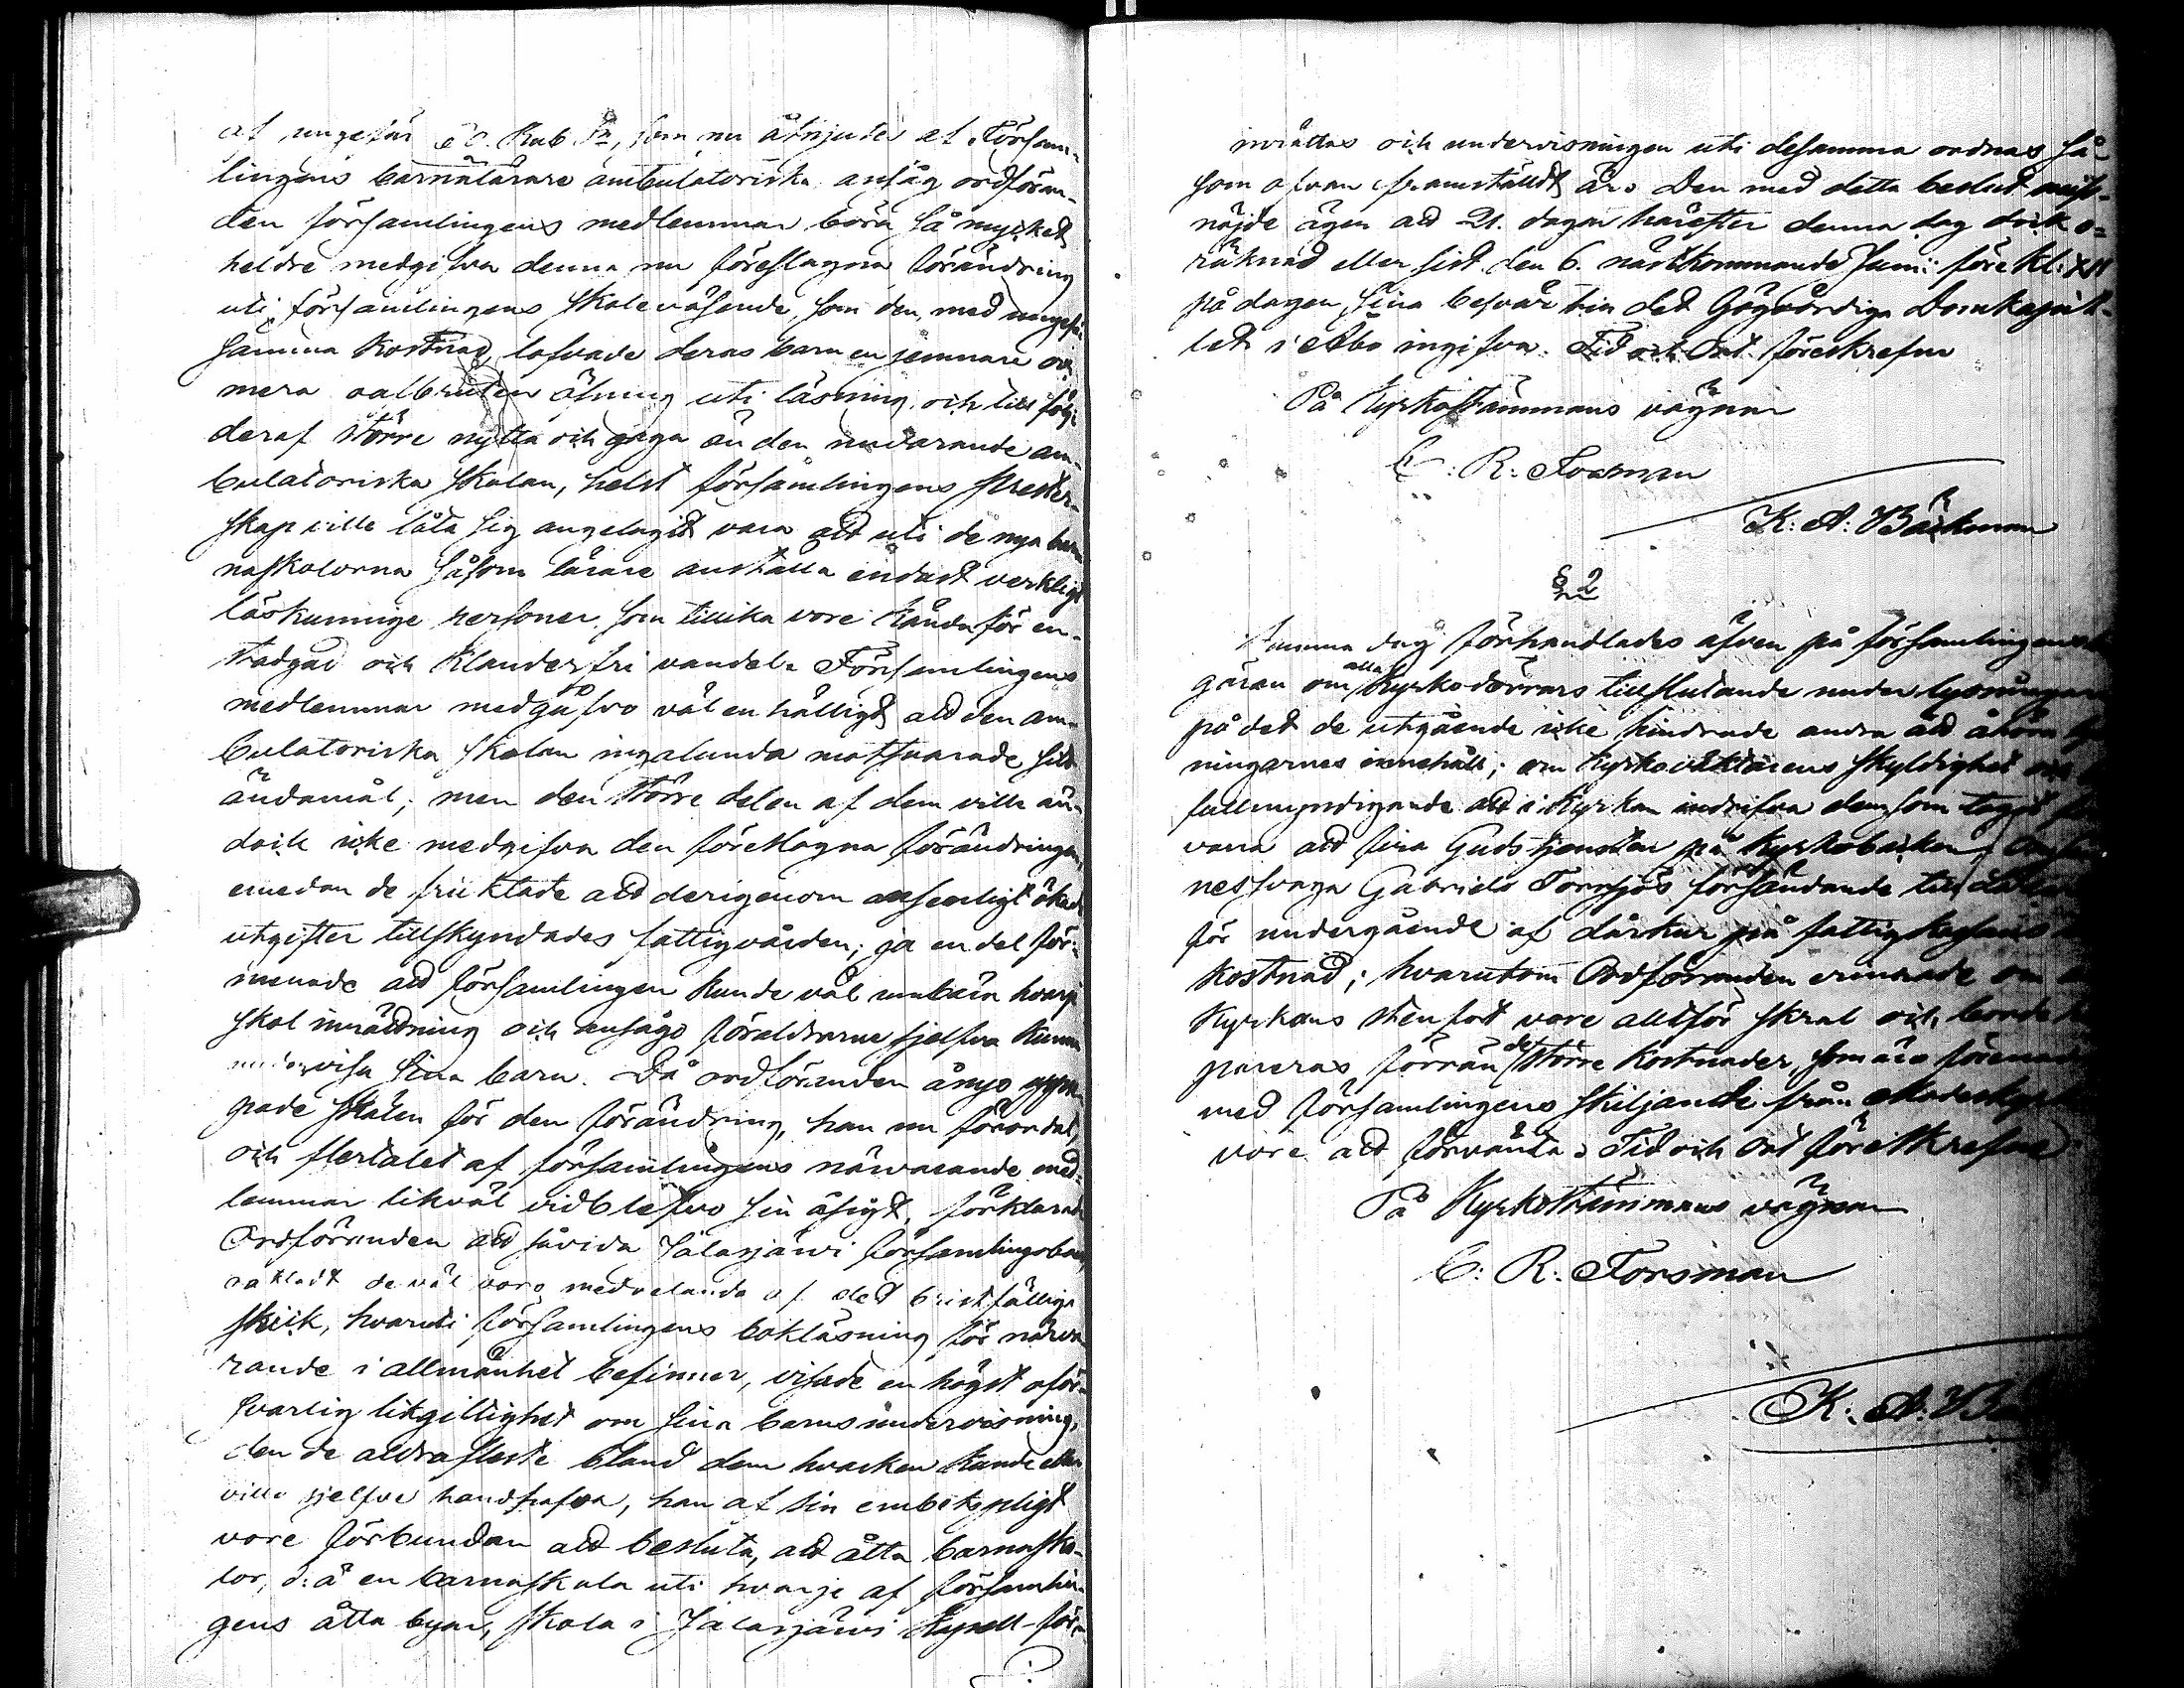 af ungefär 60. Rub. Sr, som nu åtnjutes af Försam-
lingens barnalärare ambulatoriska, ansåg ordföran-
den församlingens medlemmar böra så mycket
heldre medgifva denna nu föreslagna förändring
uti församlingens skoleväsende, som den, med ungefär
samma kostnad, lofvade deras barn en jemnare och
mera oafbruten öfning uti läsning och till följe
deraf större nytta och gagn än den nuvarande am-
bulatoriska skolan, helst församlingens prester-
skap ville låta sig angelägit vara att uti de nya bar-
naskolorna såsom lärare anställa endast verkligt
läskunnige personer som tillika vore kända för en
stadgad och klanderfri vandel. Församlingens
medlemmar medgåfvo väl enhälligt att den am-
bulatoriska skolan ingalunda motsvarade sitt
ändamål; men den större delen af dem ville än-
dock icke medgifva den föreslagna förändringen,
emedan de fruktade att derigenom ansenligt ökade
utgifter tillskyndades fattigvården; ja en del för-
menade att församlingen kunde väl umbära hvarje
skol inrättning och ansågo föräldrarne sjelfva kunna
undervisa sina barn. Då ordföranden ånyo uppre-
pade skälen för den förändring, han nu förordat,
och flertalet af församlingens närvarande med-
lemmar likväl vidblefvo sin åsigt, förklarade
Ordföranden att såvida Jalasjärvi församlingsboer,
oaktadt de väl voro medvetande af det bristfälliga
skick, hvaruti församlingens bokläsning för närva-
rande i allmänhet befinner, visade en högst oför-
svarlig likgiltighet om sina barns undervisning,
den de aldraflesta bland dem hvarken kunde eller
ville sjelfve handhafva, han af sin embetspligt
vore förbunden att besluta, att åtta barnasko-
lor, d: ä en barnaskola uti hvarje af församlin-
gens åtta byar, skola i Jalasjärvi Kapell-för-
inrättas och undervisningen uti desamma ordnas så-
som ofvan framställdt är. Den med detta beslut miss-
nöjde ägen att 21. dagen härefter denna dag dock o=
räknad eller sist den 6. nästkommande Junii före kl: XII
på dagen, sina besvär hin det Högvördiga Domkapit-
let i Åbo ingifva. Tid och Ort föreskrefne
På Kyrkostämmans vägnar
C: R: Forsman
K: A: Bäckman
§ 2
Samma dag förhandlades äfven på församlingens
gäran om alla Kyrkodörrars tillslutande under lysningarne
på det de utgående icke hindrade andra att åhöra lys-
ningarnes innehåll; om Kyrkoväktarens skyldighet
fullmyndigande att i Kyrkan indrifva dem som tagit
vana att fira Gudstjensten på Kyrkobacken;
nessvaga Gabriels Tornsjös försändande till
för undergående af dårkur på fattigkassans
kostnad; hvarutom Ordföranden erinrade om
Kyrkans stenfot vore alltför skral och borde
pareras förrän de större kostnader, som äro förenade
med församlingens skiljande från Moderkyrkan
vore att förvänta. Tid och Ort föreskrefne
På Kyrkostämmans vägnar
C: R: Forsman
K: A: Bä